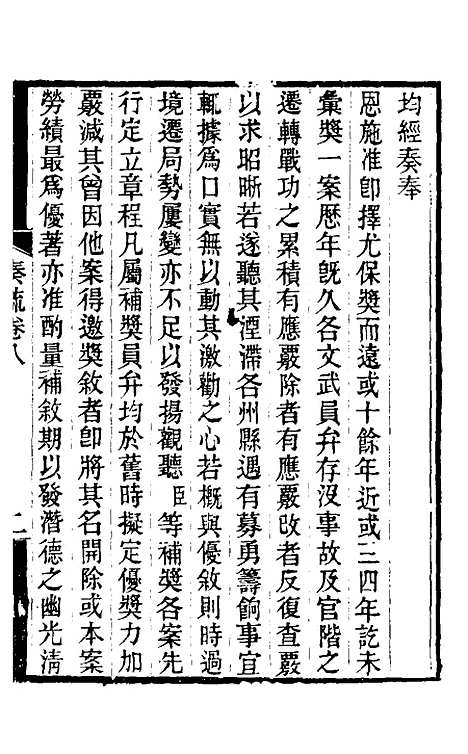 均經奏奉
恩施准卽擇尤保獎而遠或十餘年近或三四年訖未
彙獎一案歷年旣久各文武員弁存沒事故及官階之
遷轉戰功之累積有應覈除者有應覈改者反復查覈
以求昭晰若遂聽其湮滯各州縣遇有募勇籌餉事宜
輒據爲口實無以動其激勸之心若概與優敘則時過
境遷局勢屢變亦不足以發揚觀聽臣等補獎各案先
行定立章程凡屬補獎員弁均於舊時擬定優獎力加
覈減其曾因他案得邀獎敘者卽將其名開除或本案
勞績最爲優著亦准酌量補敘期以發潛德之幽光淸
奏疏卷八 二